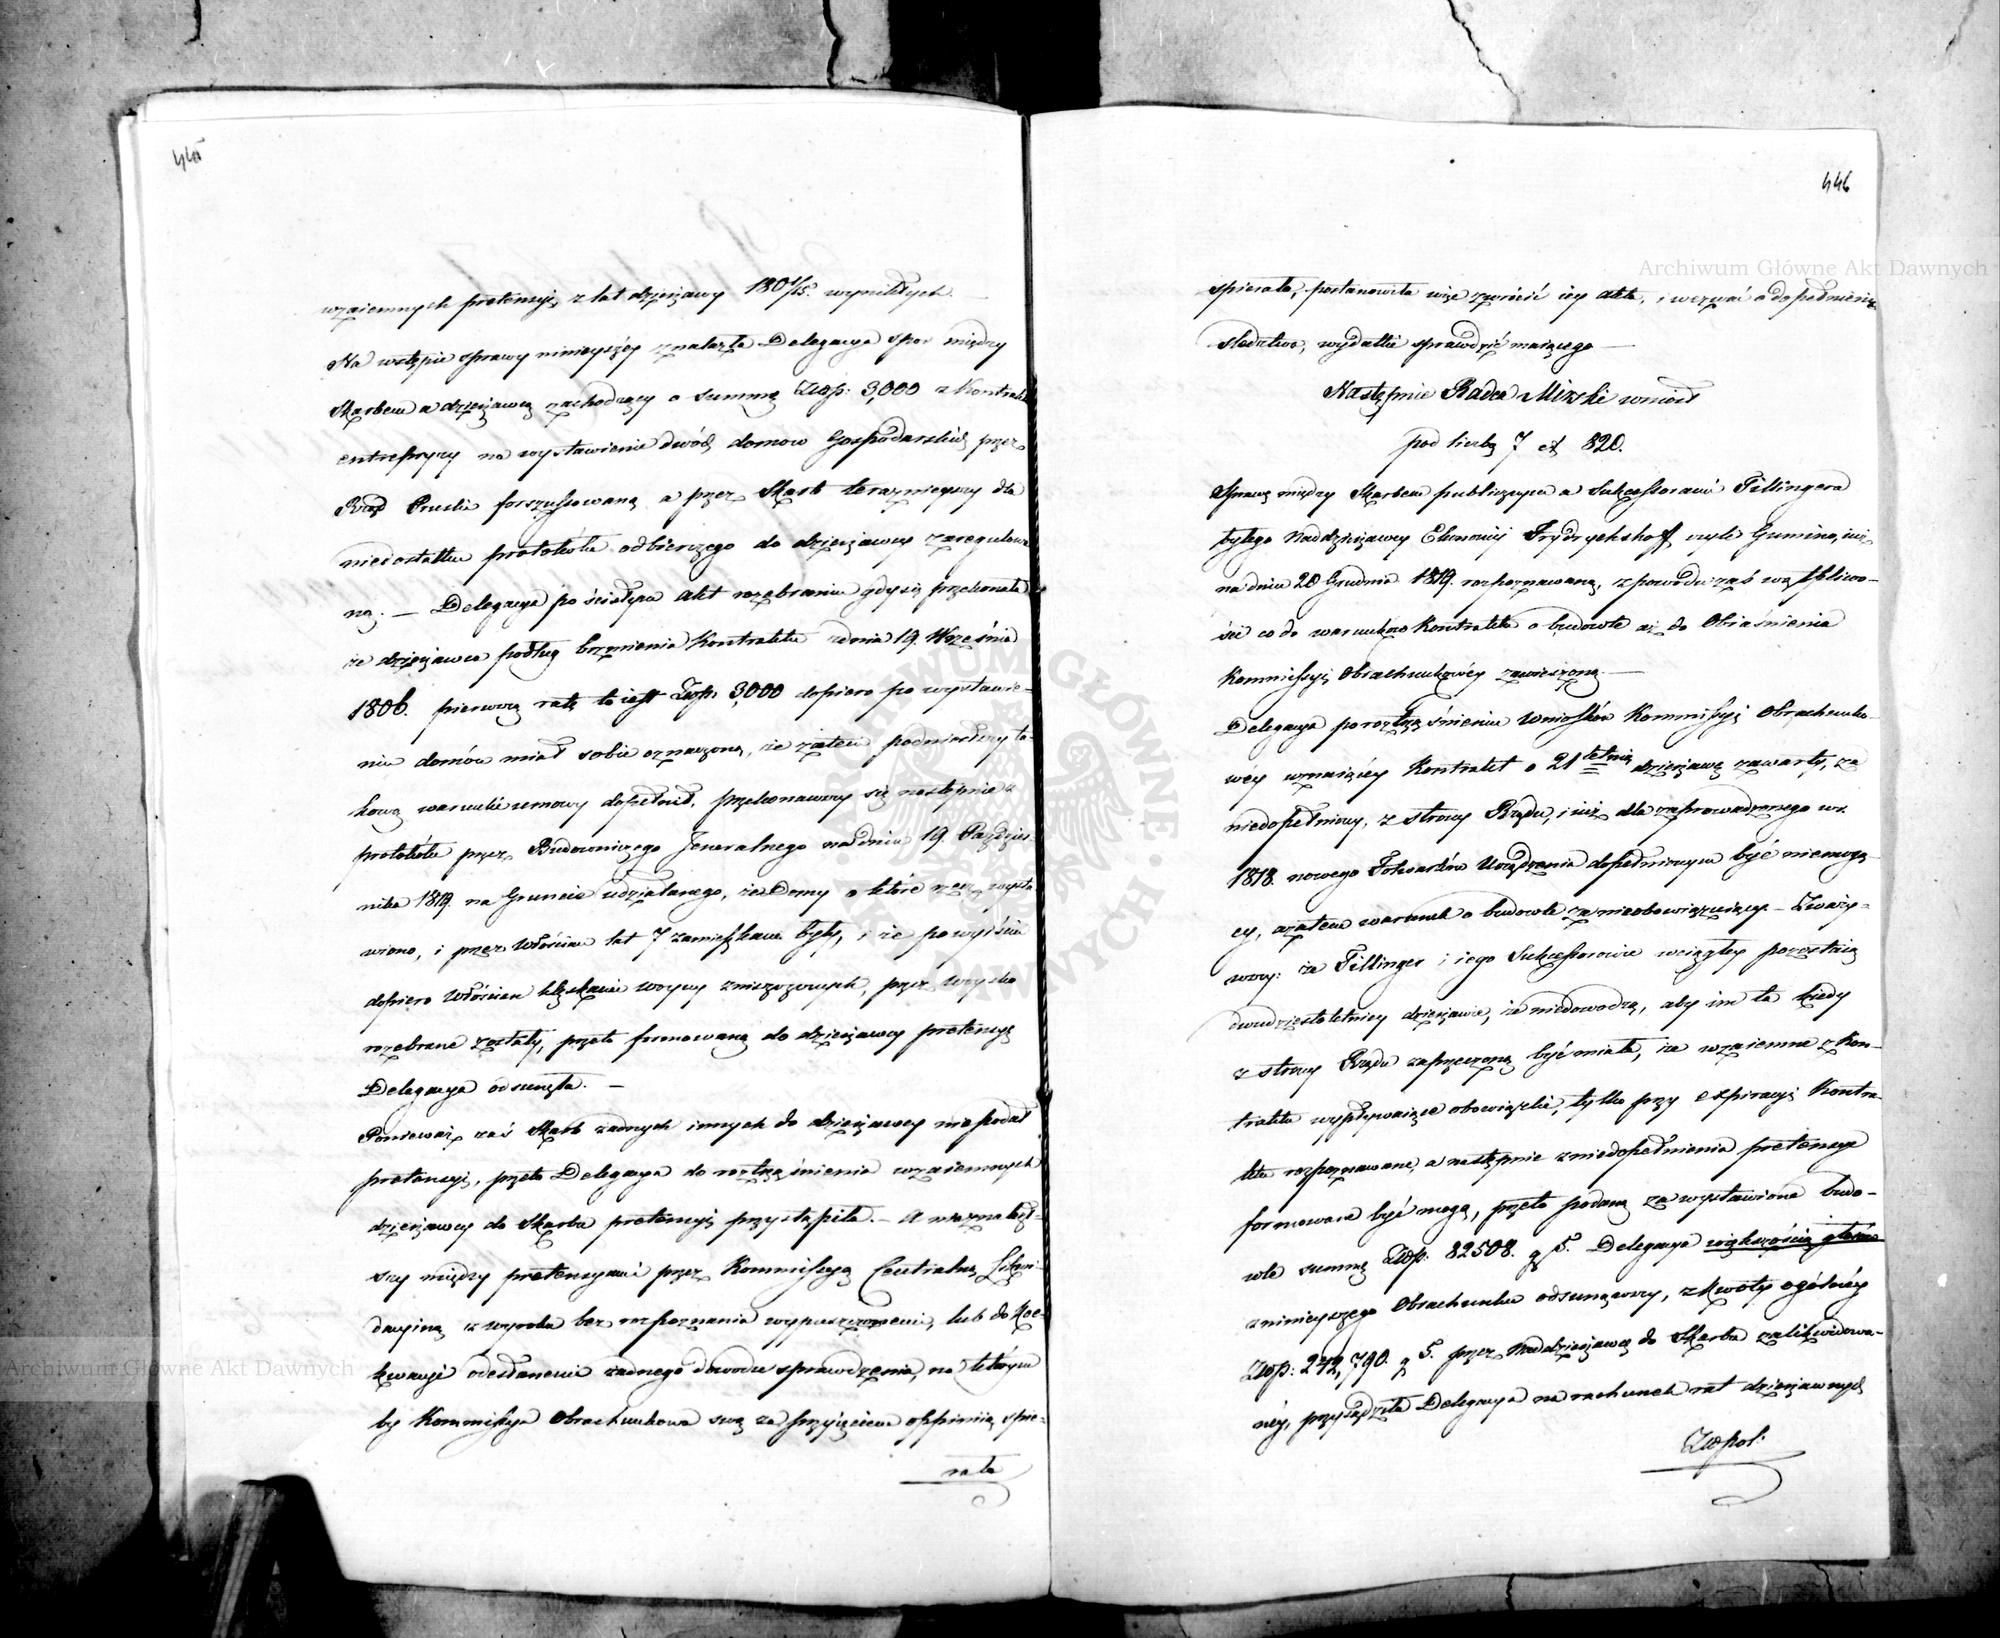 445
wzaiemnych pretensyi z lat dzierżawy 180 4/15. wynikłych
Na wstępie sprawy ninieyszéy znalazła Delegacya spor między
Skarbem a dzierżawcą zachodzący o summę Złłp: 3,000 z Kontraktu
entrepryzy na wystawienie dwóch domow Gospodarskich przez
Rząd Pruski forszussowaną a przez Skarb terazniejszy dla
niedostatku protokołu odbiorczego do dzierżawcy zaregulowa
ną. — Delegacya po ścisłym Akt rozebraniu gdy się przekonała
że dzierżawca podług brzmienia Kontraktu z dnia 19. Września
1806. pierwszą ratę to iest Złłp. 3,000 dopiero po wystawie-
niu domów miał sobie oznaczoną, że zatem podniosłszy ta-
kową warunki umowy dopełnił, przekonawszy się następnie z
protokółu przez Budowniczego Jeneralnego na dniu 19. Paździer-
nika 1819. na Gruncie zdziałanego, że Domy o które rzecz wysta-
wiono, i przez Włościan lat 7 zamieszkane były, i że po wyiściu
dopiero Włościan klęskami woyny zniszczonych, przez woysko
rozebrane zostały, przeto formowaną do dzierżawcy pretensyę
Delegacya odsunęła. —
Ponieważ zaś Skarb żadnych innych do dzierżawcy nie podał
pretensyi, przeto Delegacya do roztrząśnienia wzaiemnych
dzierżawcy do Skarbu pretensyi przystąpiła. — A nieznalazł-
szy między pretensyami przez Kommissyą Centralną Likwi-
dacyiną z wyroku bez rozpoznania wypuszczonemi, lub do Roz-
kwacyi odesłanemi żadnego dowodu sprawdzenia, na którym
by Kommissya Obrachunkowa swą za przyięciem oppiniią spie-
rała
446
spierała, postanowiła więc zwrócić iey Akta, i wezwać o dopełnienie
sledztwa, wydatki sprawdzić maiącego —
Następnie Radca Mirski wniosł
pod liczbą 7 et 820.
Sprawę między Skarbem publicznym a Sukcessorami Fillingera
byłego Naddzierżawcy Ekonomii Frydrychshoff czyli Gumino, iuż
na dniu 20 Grudnia 1819. rozpoznawaną, z powodu zaś wątpliwo-
ści co do warunków Kontraktu o budowle aż do Obiaśnienia
Kommissyi Obrachunkowéy zawieszoną —
Delegacya po roztrząśnieniu Wniosków Kommissyi Obrachunko-
wéy uznaiącéy Kontrakt o 21 letnią dzierżawę zawarty, za
niedopełniony, z strony Rządu, i iuż dla zaprowadzonego w r.
1818. nowego Folwarków Urządzenia dopełnionym być niemogą-
cy, a zatem warunek o budowle za nieobowiązuiący — Zważy-
wszy: że Fillinger i iego Sukcessorowie wciągłey pozostaią
dwudziestoletniey dzierżawie, że niedowodzą, aby im ta kiedy
z strony Rządu zaprzeczoną być miała, że wzaiemne z Kon-
traktu wypływaiące obowiązki, tylko przy expiracyi Kontra-
ktu rozpoznawane, a następnie z niedopełnienia pretensye
formowane być mogą, przeto podaną za wystawione budo-
wle summę Złłp. 82508. g 5. Delegacya większością głosów
z ninieyszego Obrachunku odsunąwszy, z kwoty ogólnéy
Złłp: 242,790. g 5. przez Naddzierżawcę do Skarbu zalikwidowa-
néy, przysądziła Delegacya na rachunek rat dzierżawnych
Złłpol:
Archiwum Główne Akt Dawnych
Archiwum Główne Akt Dawnych
ARCHIWUM GŁÓWNE AKT DAWNYCH